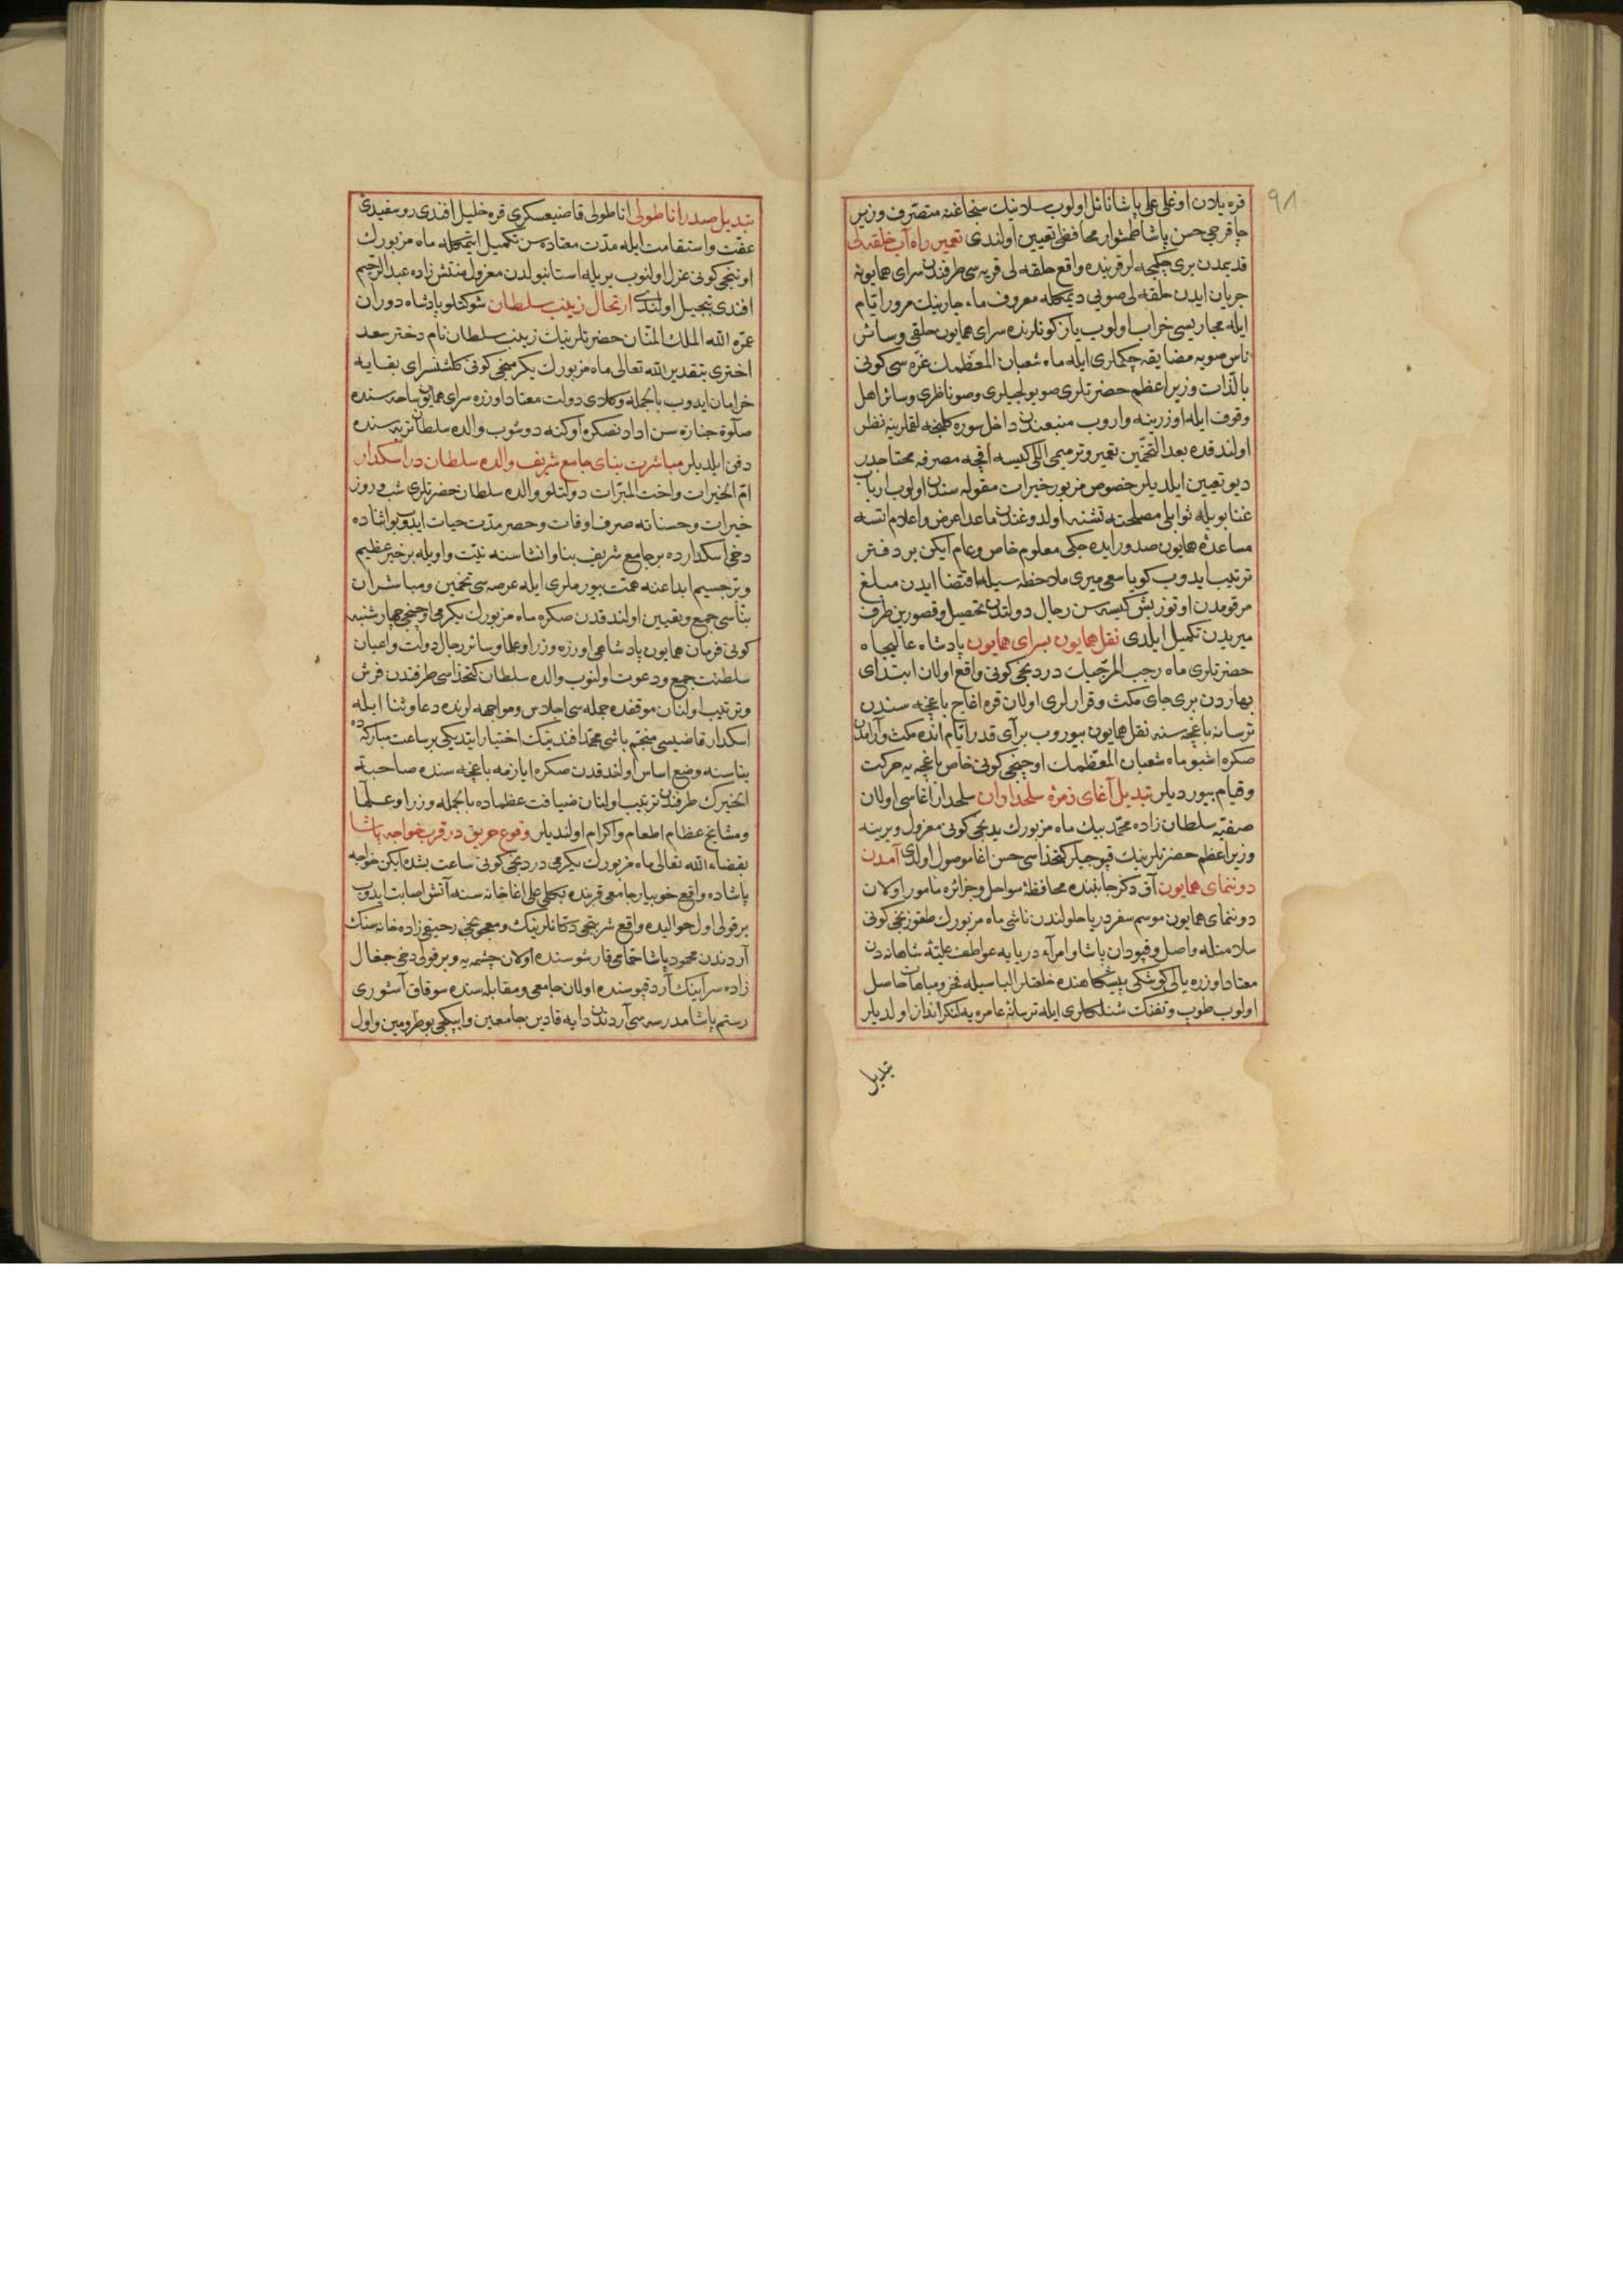 ٩٨
قره یلان اوغلی علی پاشا نائل اولوب سلانیك سنجاغنه متصرف وزیر
چاقرجی حسن پاشا طمشوار محافظی تعیین اولندی تعمیر راه آب خلقه لی
قدیمدن بری چکمجه لر قربنده واقع حلقه لی قریه سی طرفندن سرای همایونه
جریان ایدن حلقه لی صویی دیمکله معروف ماء جارینك مرور ایام
ایله مجاریسی خراب اولوب یاز کونلرنده سرای همایون خلقی وسائر
ناس صویه مضایقه چکملری ایله ماه شعبان المعظمك غره سی کونی
بالذات وزیر اعظم حضرتلری صویولجیلری وصو ناظری وسائر اهل
وقوف ایله اوزرینه واروب منبعندن داخل سوره کلنجه لقملرینه نظر
اولندقده بعد التخمین تعمیر وترمیمی اللی کیسه اقچه مصرفه محتاجدر
دیو تعیین ایلدیلر خصوص مزبور خیرات مقوله سندن اولوب ارباب
غنا بویله ثوابلی مصلحته تشنه اولدوغندن ماعدا عرض واعلام اتسه
مساعدۀ همایون صدور ایده جکی معلوم خاص وعام ایکن بر دفتر
ترتیب ایدوب کویا سعی میری ملاحظه سیله اقتضا ایدن مبلغ
مرقومدن اوتوز بش کیسه سن رجال دولتدن تحصیل وقصورین طرف
میریدن تکمیل ایلدی نقل همایون بسرای همایون پادشاه عالیجاه
حضرتلری ماه رجب المرجبك دردنجی کونی واقع اولان ابتدای
بهاردن بری جای مکث وقرارلری اولان قره اغاج باغچه سندن
ترسانه باغچه سنه نقل همایون بیوروب بر آی قدر ایام انده مکث وآرامدن
صکره اشبو ماه شعبان المعظمك اوچنجی کونی خاص باغچه یه حرکت
وقیام بیوردیلر تبدیل آغای زمرۀ سلحداران سلحدار اغاسی اولان
صفیه سلطان زاده محمد بیك ماه مزبورك یدنجی کونی معزول ویرینه
وزیر اعظم حضرتلرینك قپوجیلر کتخداسی حسن اغا موصول اولدی آمدن
دوننمای همایون آق دکز جانبنده محافظۀ سواحل وجزائره مامور اولان
دوننمای همایون موسم سفر دریا حلولندن ناشی ماه مزبورك طقوزنجی کونی
سلامتله واصل وقپودان پاشا وامرآء دریایه عواطف علیۀ شاهانه دن
معتاد اوزره یالی کوشکی پیشگاهنده خلعتلر الباسیله فخر ومباهات حاصل
اولوب طوپ وتفنك شنلکلری ایله ترسانۀ عامره یه لنکر انداز اولدیلر
تبدیل
تبدیل صدر اناطولی اناطولی قاضیعسکری قره خلیل افندی روسفیدئ
عفت واستقامت ایله مدت معتاده سن تکمیل ایتمکله ماه مزبورك
اوننجی کونی عزل اولنوب یریله استانبولدن معزول منتش زاده عبد الرحیم
افندی تبجیل اولندی ارتحال زینب سلطان شوکتلو پادشاه دوران
عزه الله الملك المنان حضرتلرینك زینب سلطان نام دختر سعد
اختری بتقدیر الله تعالی ماه مزبورك یکرمنجی کونی کلشنسرای بقایه
خرامان ایدوب بالجمله وکلای دولت معتاد اوزره سرای همایون ساحه سنده
صلوة جنازه سن ادادنصکره اوکنه دوشوب والده سلطان تربه سنده
دفن ایلدیلر مباشرت بنای جامع شریف والده سلطان در اسکدار
ام الخیرات واخت المبرات دولتلو والده سلطان حضرتلری شب وروز
خیرات وحسناته صرف اوقات وحصر مدت حیات ایدوب بو اثناده
دخی اسکدارده بر جامع شریف بنا وانشاسنه نیت واویله بر خیر عظیم
وترجسیم ابداعنه همت بیورملری ایله عرصه سی تخمین ومباشران
بناسی جمع وتعیین اولندقدن صکره ماه مزبورك یکرمی اوچنجی چهارشنبه
کونی فرمان همایون پادشاهی اوزره وزرا وعلما وسائر رجال دولت واعیان
سلطنت جمع ودعوت اولنوب والده سلطان کتخداسی طرفندن فرش
وترتیب اولنان موقفده جمله سی اجلاس ومواجهه لرنده دعا وثنا ایله
اسکدار قاضیسی منجم باشی محمد افندینك اختیار ایتدیکی بر ساعت مبارکه ده
بناسنه وضع اساس اولندقدن صکره ایازمه باغچه سنده صاحبة
الخیرك طرفندن ترتیب اولنان ضیافت عظماده بالجمله وزرا وعلما
ومشایخ عظام اطعام واکرام اولندیلر وقوع حریق در قرب خواجه پاشا
بقضاء الله تعالی ماه مزبورك یکرمی دردنجی کونی ساعت بشده ایکن خواجه
پاشاده واقع خوبیار جامعی قربنده بکلی علی اغا خانه سنه آتش اصابت ایدوب
بر قولی اول حوالیده واقع شربتجی دکانلرینك ومعجونجی رحیقی زاده خانه سنك
آردندن محمود پاشا حمامی قارشوسنده اولان چشمه یه وبر قولی دخی جغال
زاده سراینك آرد قپوسنده اولان جامعی ومقابله سنده سوقاق آشوری
رستم پاشا مدرسه سی آردندن دایه قادین جامعین وایپکجی بوطرومین واول